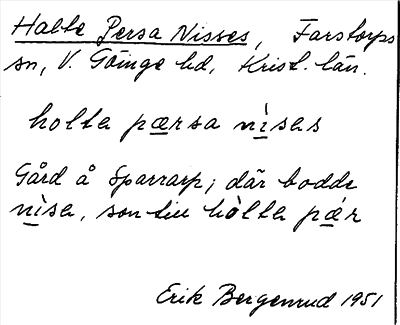 Halte Persa Nisses, Farstorps
sn, V. Göinge hd, Krist. län.
holta pærsa nisas
Gård å Sparrarp; där bodde
nisa, son till hòlta pær
Erik Bergenrud 1951